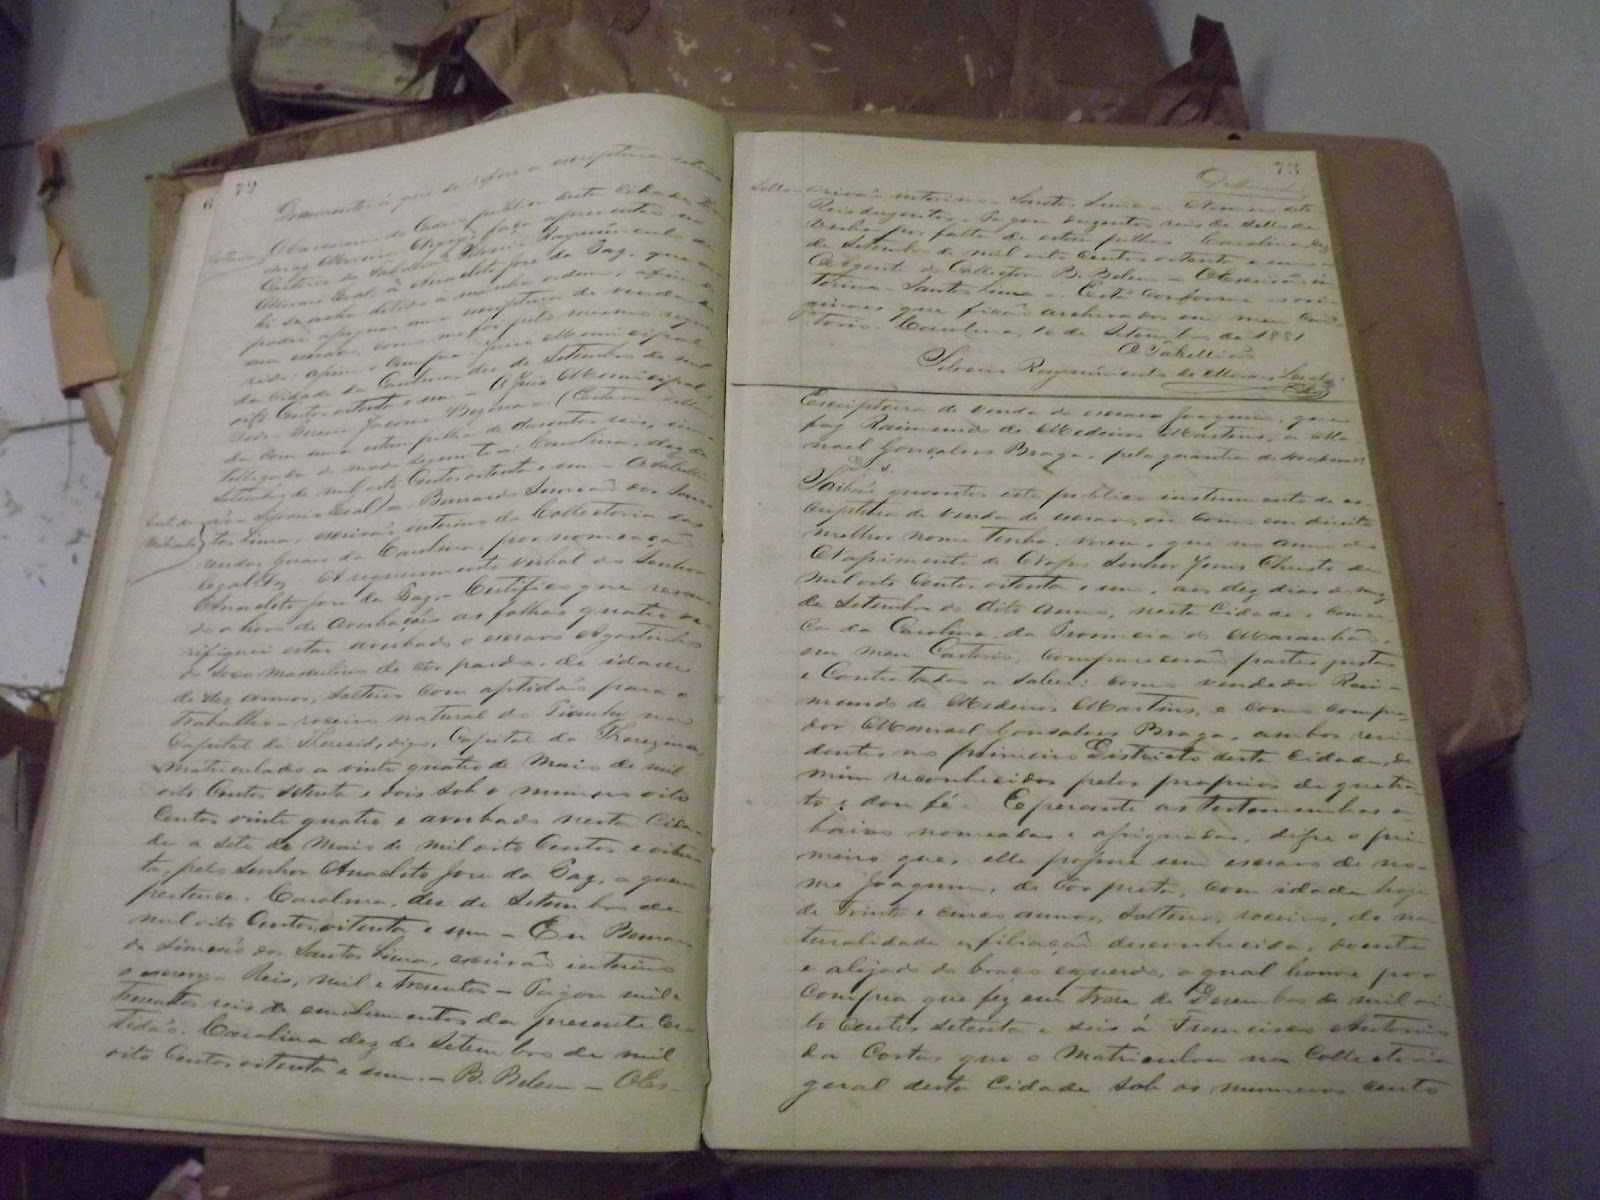 72
Documentos á que se refere a escriptura retro
O Escrivão da Cadeia publica desta Cidade
faça apresentar no
Cartorio do Tabellião Silverio Raymundo de
Moraes Leal, á Anacleto José da Paz, que a-
hi se acha detido a minha ordem, afim de
poder assignar uma escriptura de venda de
seu escravo, como me foi pelo mesmo reque-
rido: assim o cumpra. Juizo Municipal
da Cidade da Carolina, dez de Setembro de mil
oito Centos oitenta e um - O Juiz Municipal
Bezerra - (Estava sella-
da com uma estampilha de duzentos reis, inu-
tilizada do modo seguinte: Carolina, dez de
Setembro de mil oito Centos oitenta e um - O Tabelli-
ão - Silverio Leal) - Bernardo Simeão dos San-
tos Lima, escrivão interino da Collectoria das
rendas geraes da Carolina, por nomeação
legal &ª A requerimento verbal do Senhor
Anacleto José da Paz, - Certifico que reven-
do o livro de Averbações as folhas quatro ve-
rifiquei estar averbado o escravo Agostinho
do sexo masculino de côr parda, de idade
de dez annos, solteiro com aptidão para o
trabalho - roceiro natural do Piauhy na
Capital da Theresid, digo, Capital da Therezina,
matriculado a vinte quatro de Maio de mil
oito Centos setenta e dois sob o numero oito
Centos vinte quatro e averbado nesta Cida-
de a sete de Maio de mil oito Centos e oiten-
ta, pelo Senhor Anacleto José da Paz, a quem
pertence. Carolina, dez de Setembro de
mil oito Centos oitenta e um - Eu Bernar-
do Simeão dos Santos Lima, escrivão interino
o escrevy - Reis, mil e tresentos - Pagou mil e
tresentos reis de emolumentos da presente Cer-
tidão. Carolina dez de Setembro de mil
oito Centos oitenta e um. - B. Belem - O Es-
73
Sello - crivão interino - Santos Lima -
Reis duzentos - Pagou duzentos reis de sello de
verba por falta de estampilhas Carolina, dez
de Setembro de mil oito Centos oitenta e um -
O Agente do Collector B. Belem - O Escrivão in-
terino - Santos Lima - Está Conforme os ori-
ginaes que ficão archivados em meu Car-
torio. Carolina, 10 de Setembro de 1881
O Tabellião
Silverio Raymundo de Moraes Leal
Escriptura de venda do escravo Joaquim, que
faz Raimundo de Medeiros Martins, a Ma-
nael Gonçalves Braga, pela quantia de
Saibão quantos este publico instrumento de es-
criptura de venda de escravo, ou como em direito
melhor nome tenha, virem, que no anno do
Nascimento de Nosso Senhor Jesus Christo de
mil oito Centos oitenta e um, aos dez dias do mez
de Setembro do dito anno, nesta Cidade e comar-
ca da Carolina, da Provincia do Maranhão,
em meu Cartorio, comparecerão partes justas
e Contratadas a saber: como vendedor Rai-
mundo de Medeiros Martins, e como compra-
dor Manael Gonsalves Braga, ambos resi-
dentes no primeiro Districto desta Cidade, de
mim reconhecidos pelos proprios de que tra-
to e dou fé. E perante as testemunhas a-
baixo nomeadas e assignadas, disse o pri-
meiro que, elle possue um escravo de no-
me Joaquim, de côr preta, com idade hoje
de trinta e cinco annos, solteiro, roceiro, de na-
turalidade e filiação desconhecida, doente
e alejado do braço esquerdo, o qual houve por
compra que fez em treze de Dezembro de mil oi-
to Centos setenta e seis á Francisco Antonio
da Costa, que o Matriculou na Collectoria
geral desta Cidade sob os numeros cento